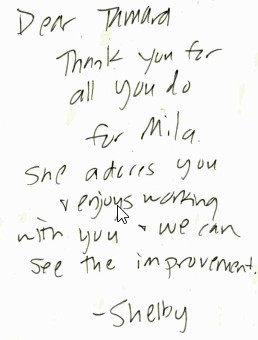 Dear Tamara
Thank you for
all you do
for Mila.
She adores you
& enjoys working
with you & we can
see the improvement.
-Shelby